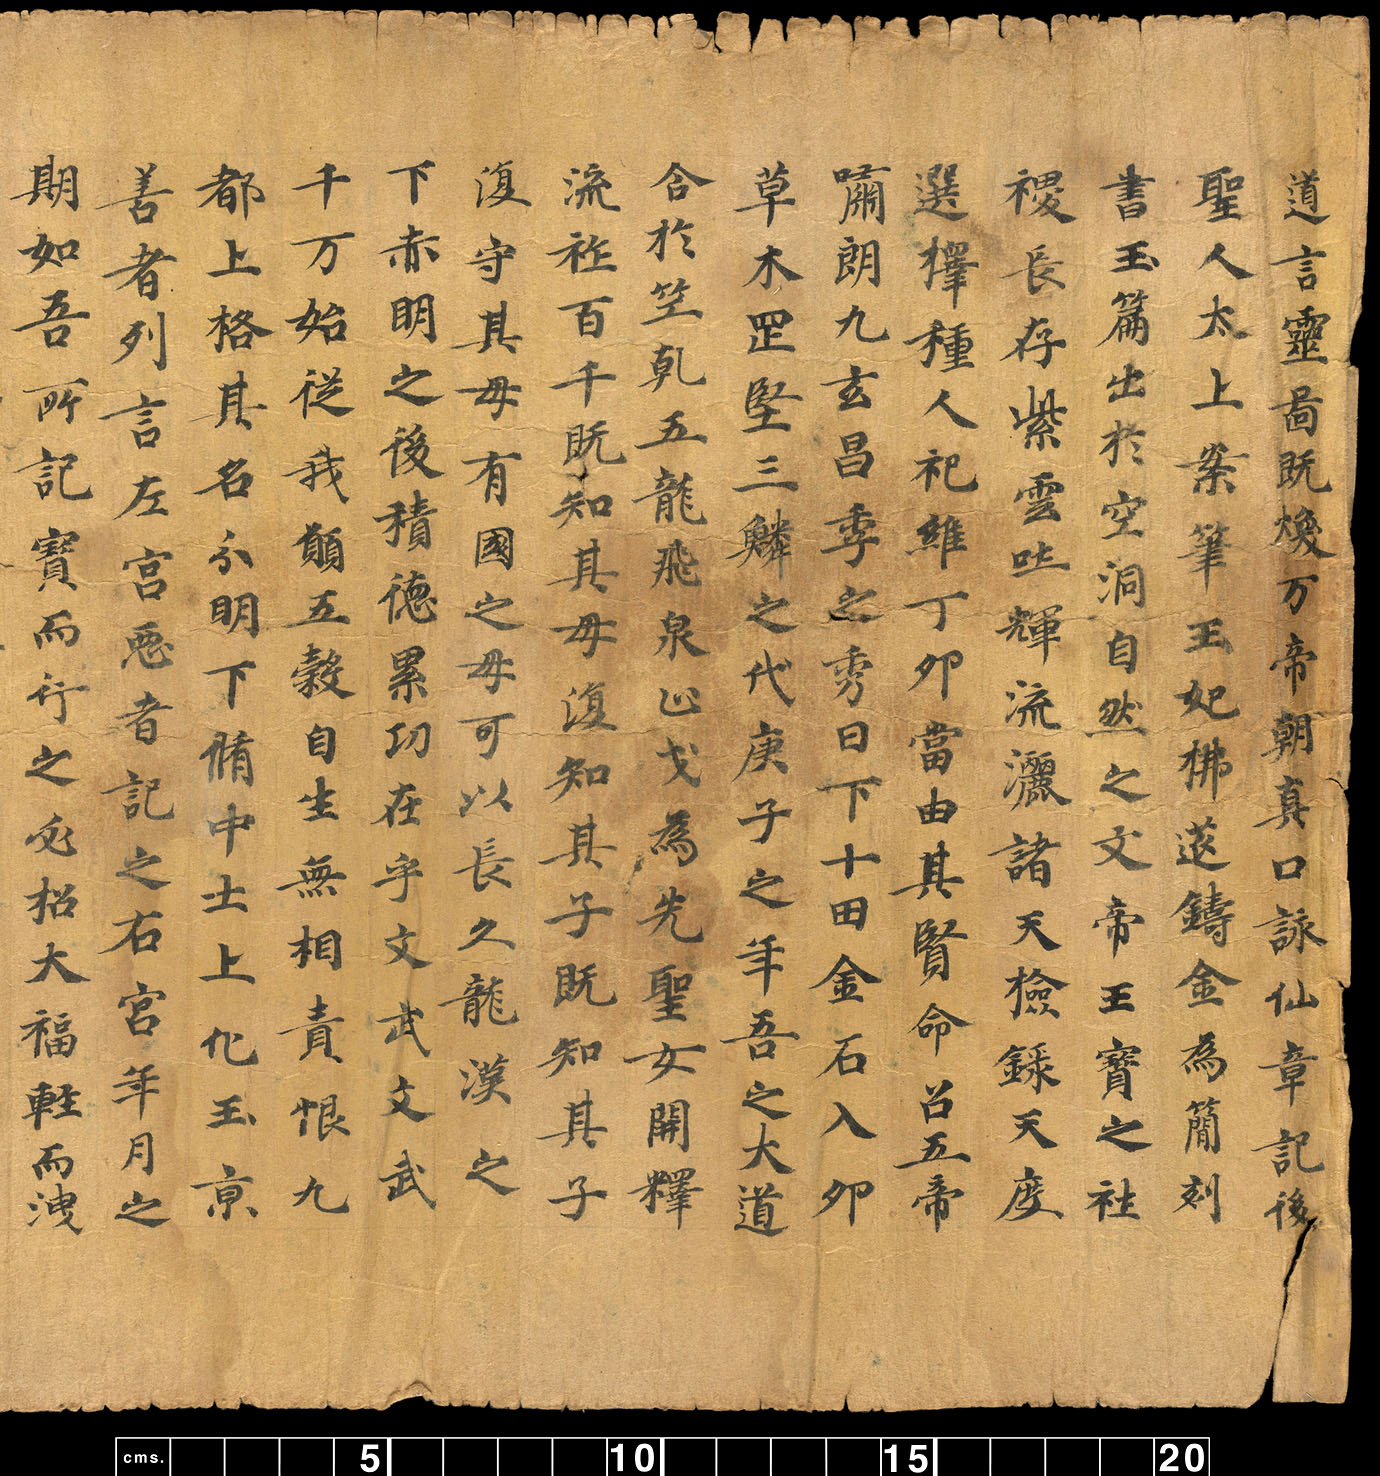 道言靈啚既煥万帝朝真口詠仙章記後
聖人太上案筆玉妃拂莚鑄金為簡刻
書玉篇出於空洞自然之文帝王寶之社
稷長存紫雲吐輝流灑諸天檢錄天度
選擇種人祀維丁卯當由其賢命召五帝
嘯朗九玄昌季之秀日下十田金石入卯
草木罡堅三鱗之代庚子之年吾之大道
合於竺乹五龍飛泉止戈為先聖女開釋
流祚百千既知其母復知其子既知其子
復守其母有國之母可以長久龍漢之
下赤明之後積德累功在乎文武文武
千万始從我願五穀自生無相責恨九
都上格其名分明下脩中士上化玉京
善者列言左宮惡者記之右宮年月之
期如吾所記寶而行之必招大福輕而洩